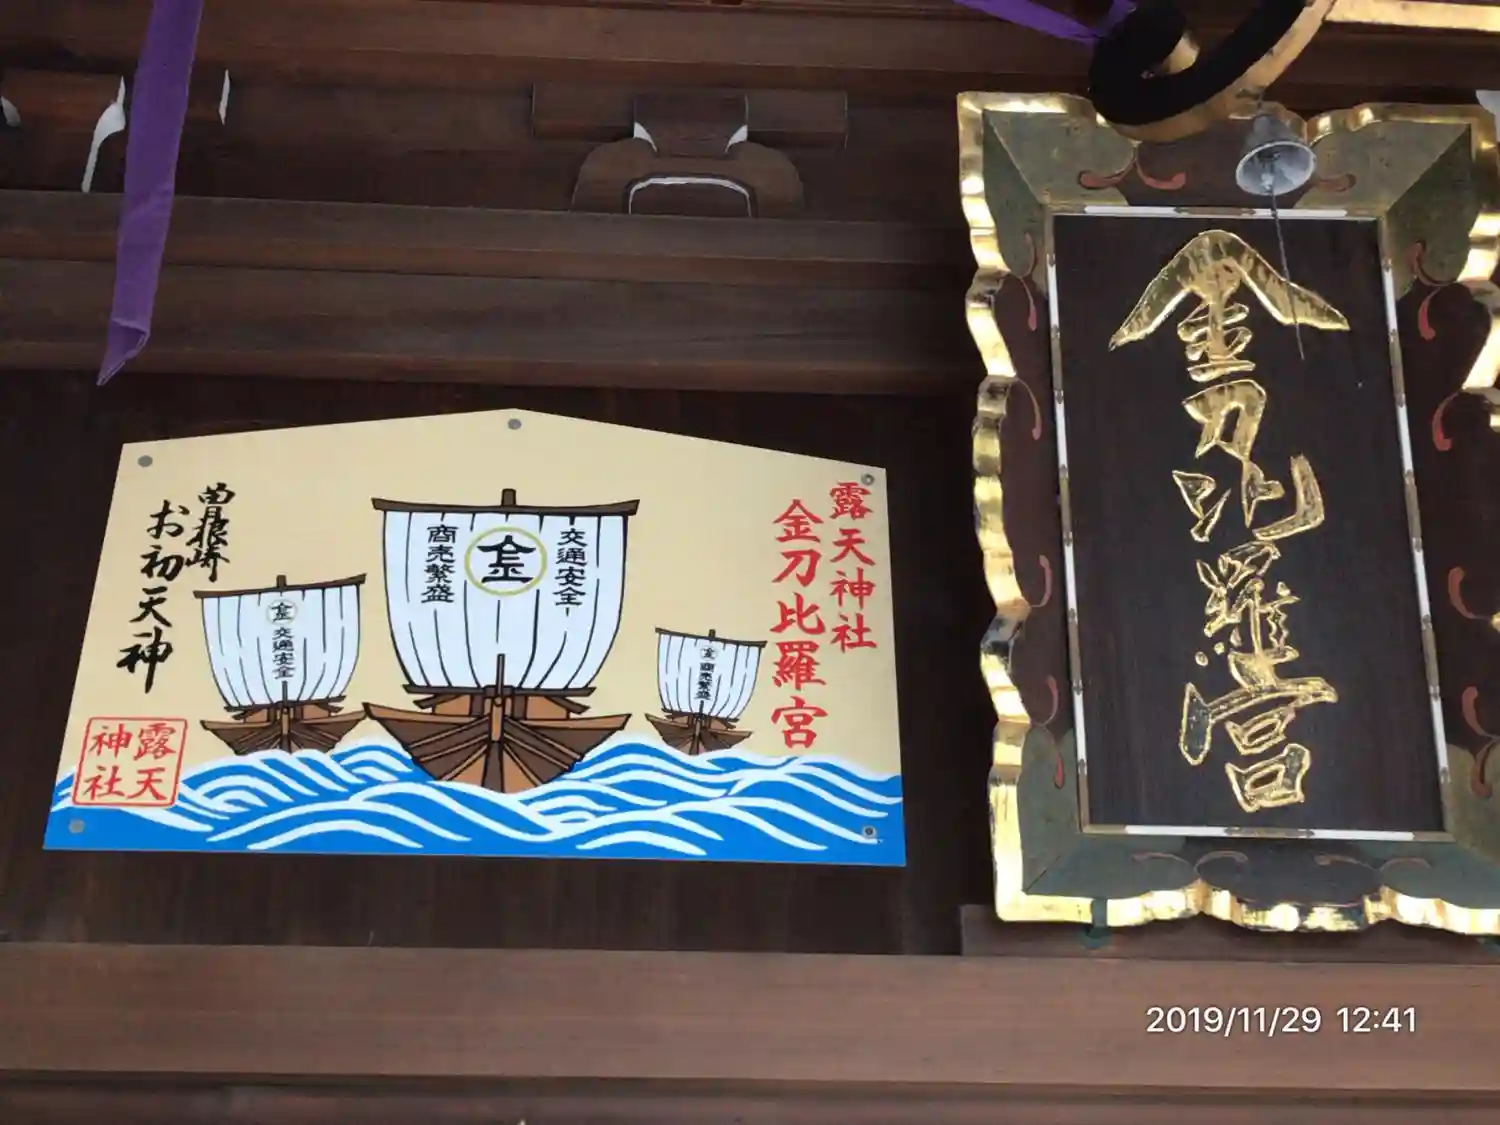 金刀比羅宮
露天神社
金刀比羅宮
交通安全
金
商売繁盛
金
商売繁盛
金
交通安全
曽根崎
お初天神
露天
神社
2019/11/29 12:41